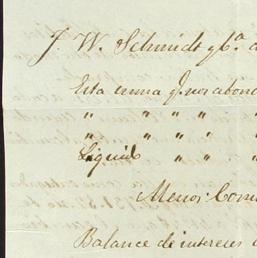 J. W. Schmidt y Ca. d
Esta suma q. nos abona
" " " "
" " " "
Liquid " "
Menos: Com
Balance de intereses